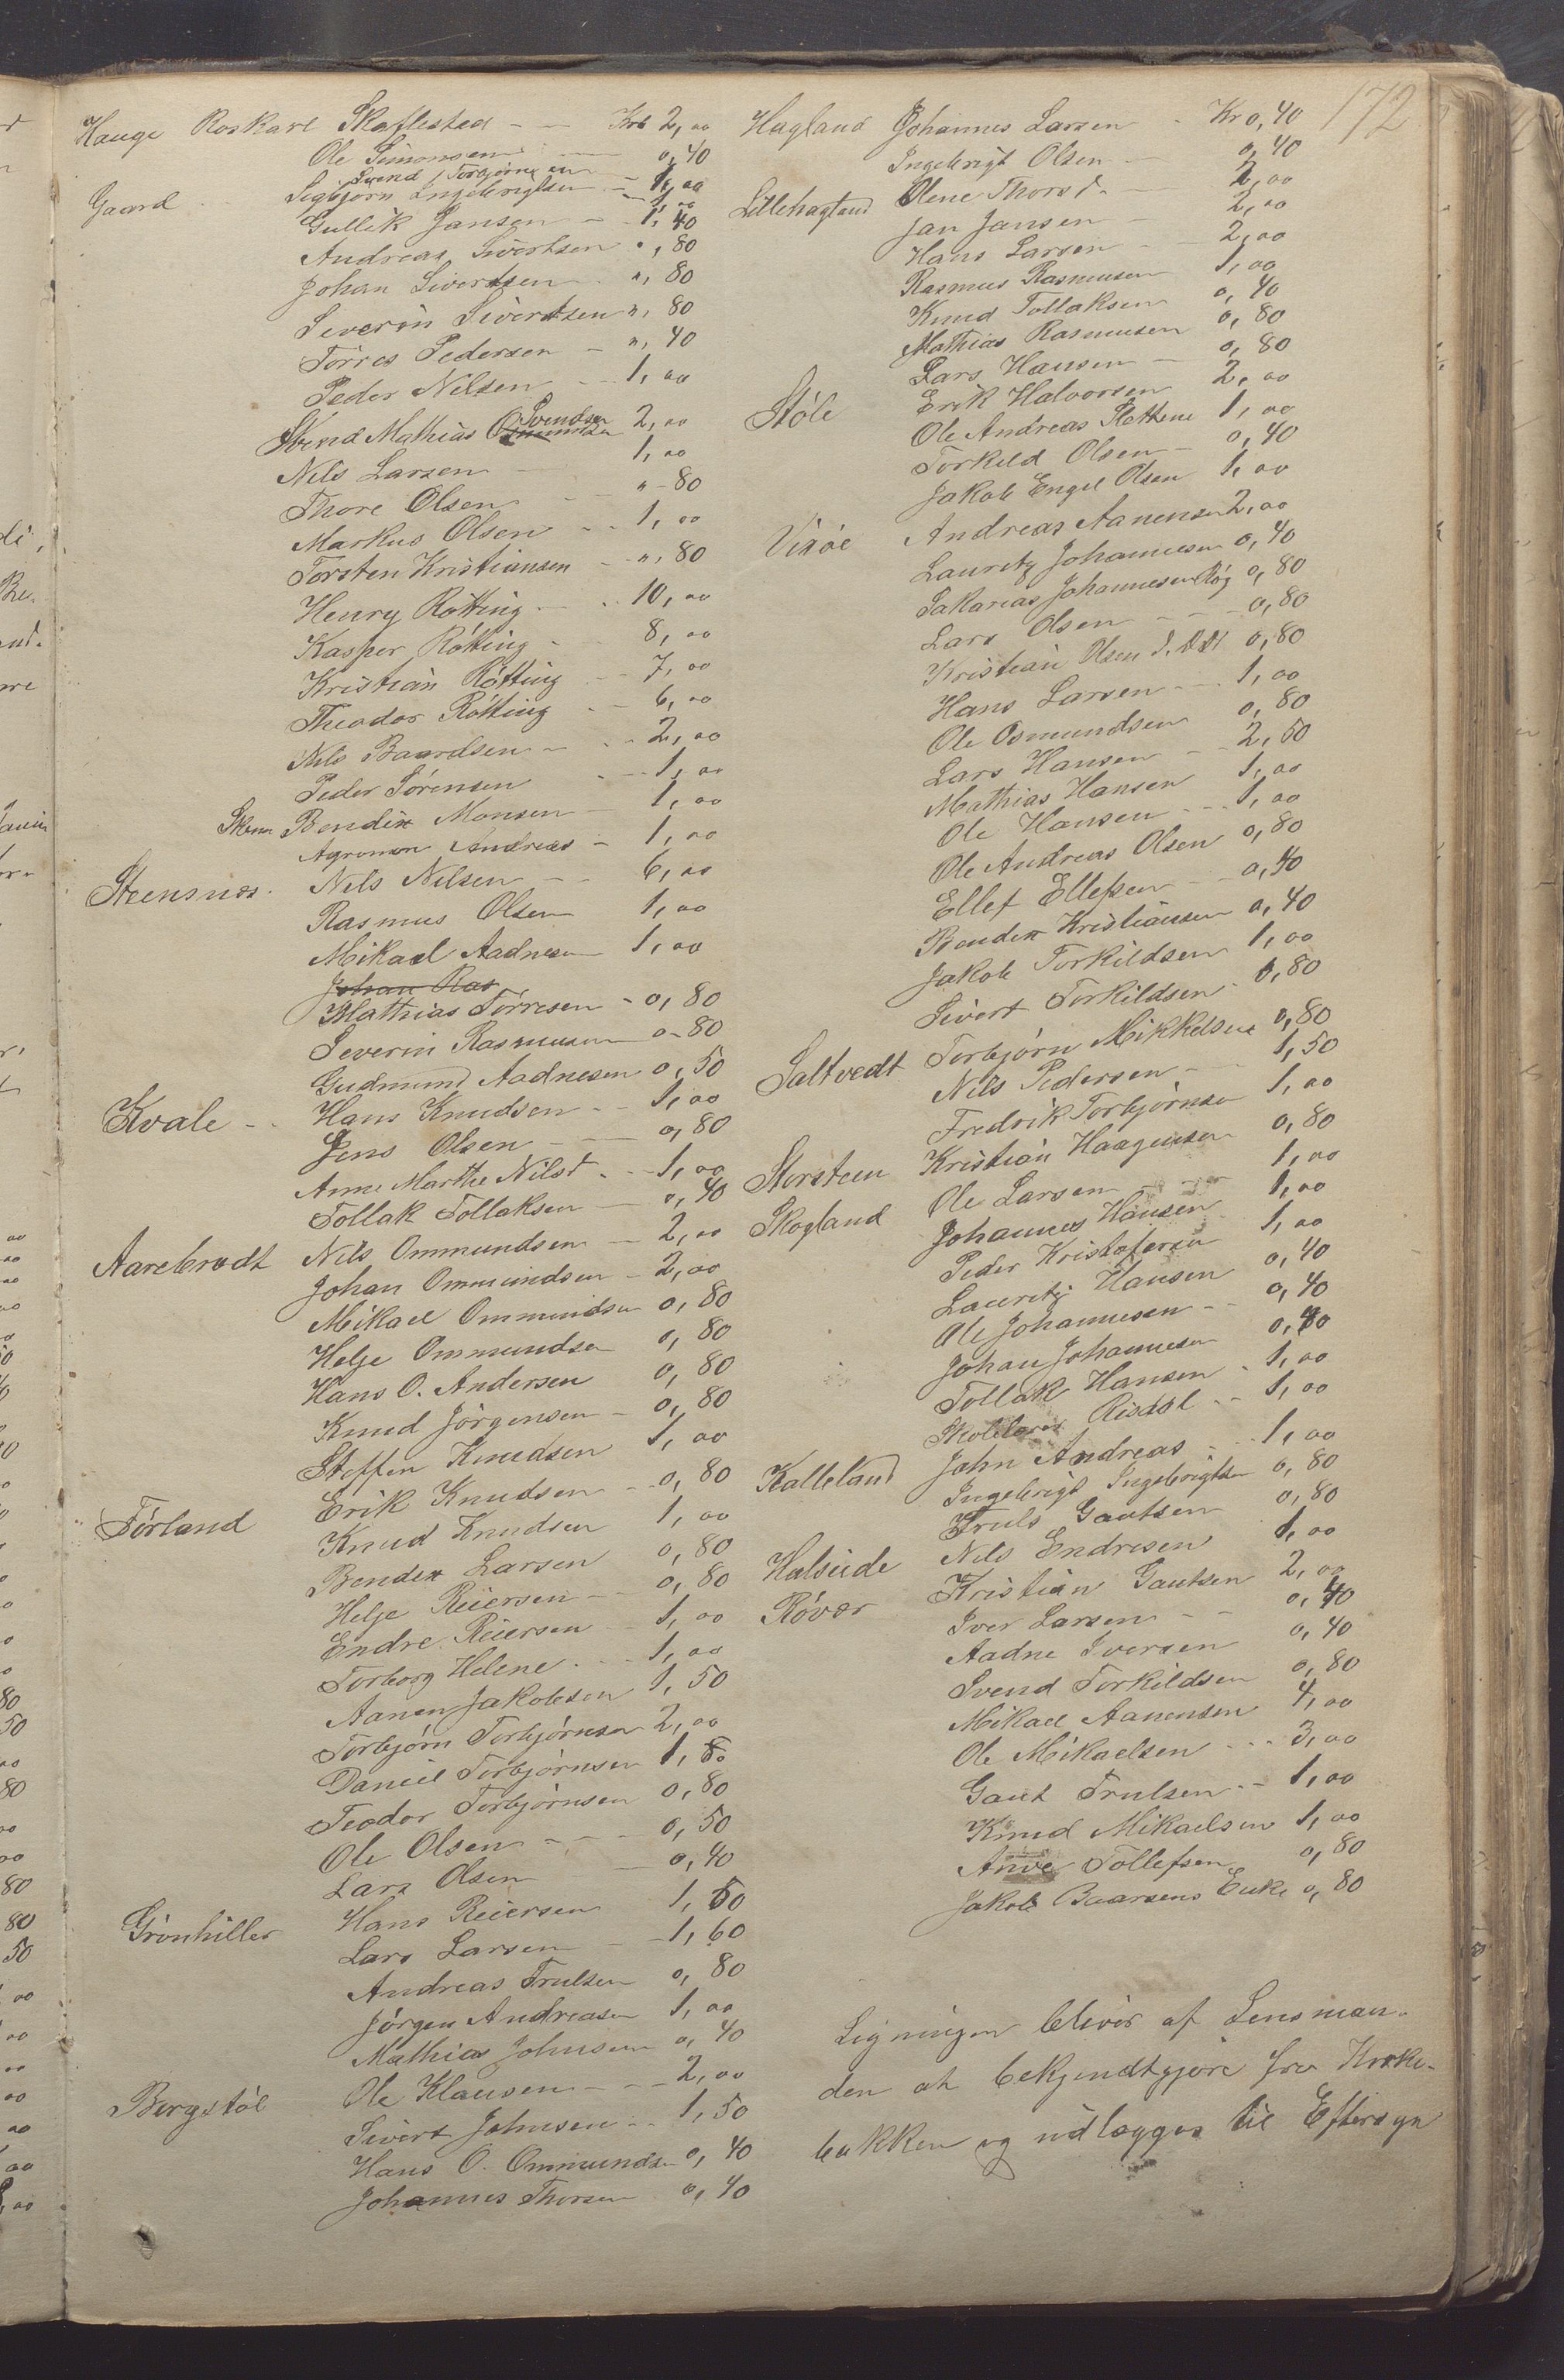 172
Hauge Roskarl Skaflestad - - Kr 2,00
Ole Simonsen - 0,40
Svend Torbjörnsen - 1,00
Gaard Sigbjörn Ingebrigtsen - 1,00
Gullik Jansen - 1,40
Andreas Sivertsen 0,80
Johan Sivertsen ", 80
Severin Sivertsen ", 80
Törres Pedersen - ", 40
Peder Nilsen - 1,00
Svend Mathias Svendsen 2,00
Nils Larsen 1,00
Thore Olsen " - 80
Markus Olsen - 1,00
Torsten Kristiansen - ", 80
Henry Rötting - 10,00
Kasper Rötting - 8,00
Kristian Rötting - 7,00
Theodor Rötting - 6,00
Nils Baardsen - 2,00
Peder Sörensen - 1,00
Bendix Monsen 1,00
Agronom Andreas - 1,00
Steensnæs Nils Nilsen - 6,00
Rasmus Olsen 1,00
Mikael Aadnesen 1,00
Johan Ras
Mathias Törresen - 0,80
Severin Rasmussen 0-80
Gudmund Aadnesen 0,50
Kvale - Hans Knudsen - 1,00
Jens Olsen - 0,80
Anne Marthe Nilsd. - 1,00
Tollak Tollaksen 0,40
Aarebrodt Nils Ommundsen - 2,00
Johan Ommundsen - 2,00
Mikael Ommundsen 0,80
Helge Ommundsen 0,80
Hans O. Andersen 0,80
Knud Jörgensen - 0,80
Steffen Knudsen 1,00
Erik Knudsen - 0,80
Förland Knud Knudsen 1,00
Bendix Larsen 0,80
Helge Reiersen - 0,80
Endre Reiersen 1,00
Torborg Helene - 1,00
Aanen Jakobsen 1,50
Torbjörn Torbjörnsen 2,00
Daniel Torbjörnsen 1,80
Teodor Torbjörnsen 0,80
Ole Olsen - - 0,50
Lars Olsen 0,40
Grönhiller Hans Reiersen 1,50
Lars Larsen - 1,60
Andreas Trulsen 0,80
Jörgen Andreasen 1,00
Mathias Johnsen 0,40
Bergstöl Ole Klausen - - 2,00
Sivert Johnsen - 1,50
Hans O. Ommundsen 0,40
Johannes Thorsen 0,40
Hagland Johannes Larsen - Kr 0,40
Ingebrigt Olsen - 0,40
Lillehagland Olene Thorsd. - 2,00
Jan Jansen - 2,00
Hans Larsen - 2,00
Rasmus Rasmusen 1,00
Knud Tollaksen 0,40
Mathias Rasmusen 0,80
Lars Hansen - 0,80
Stöle Erik Halvorsen 2,00
Ole Andreas Slettene 1,00
Torkild Olsen - 0,40
Jakob Engel Olsen 1,00
Vixöe Andreas Aanensen 2,00
Lauritz Johannesen 0,40
Sakarias Johannesen 0,80
Lars Olsen - - 0,80
Kristian Olsen 0,80
Hans Larsen - 1,00
Ole Osmundsen 0,80
Lars Hansen - 2,50
Mathias Hansen 1,00
Ole Hansen - 1,00
Ole Andreas Olsen 0,80
Ellef Ellefsen - 0,40
Bendix Kristiansen 0,40
Jakob Torkildsen 1,00
Sivert Torkildsen - 0,80
Saltvedt Torbjörn Mikkelsen 0,80
Nils Pedersen - 1,50
Fredrik Torbjörnsen 1,00
Storsteen Kristian Haagensen 0,80
Ole Larsen - 1,00
Skogland Johannes Hansen 1,00
Peder Kristofersen 1,00
Lauritz Hansen 0,40
Ole Johannesen - 0,40
Johan Johannesen 0,40
Tollak Hansen - 1,00
Ristöl - 1,00
Kalleland John Andreas - 1,00
Ingebrigt Ingebrigtsen 0,80
Truls Gautsen 0,80
Halseide Nils Endresen 1,00
Rövær Kristian Gautsen 2,00
Iver Larsen - - 0,40
Aadne Iversen 0,40
Svend Torkildsen 0,80
Mikael Aanensen 4,00
Ole Mikaelsen - 3,00
Gaut Trulsen - 1,00
Knud Mikaelsen 1,00
Anve Tollefsen 0,80
Jakob Baarsens Enke 0,80
Ligningen bliver af Lensman-
den at bekjendtgjøre fra Kirke-
bakken og udlægges til Eftersyn